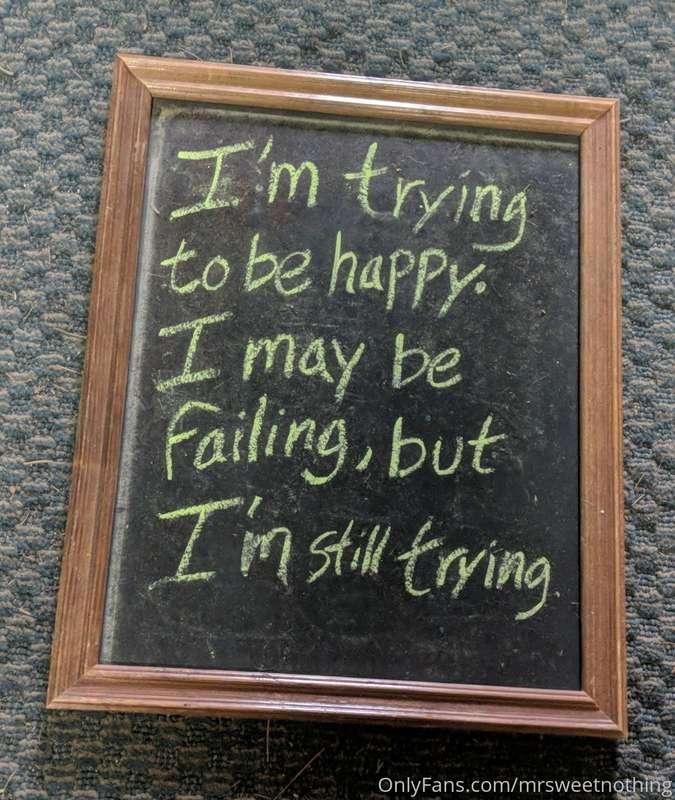 I'm trying
to be happy.
I may be
failing, but
I'm still trying.
OnlyFans.com/mrsweetnothing